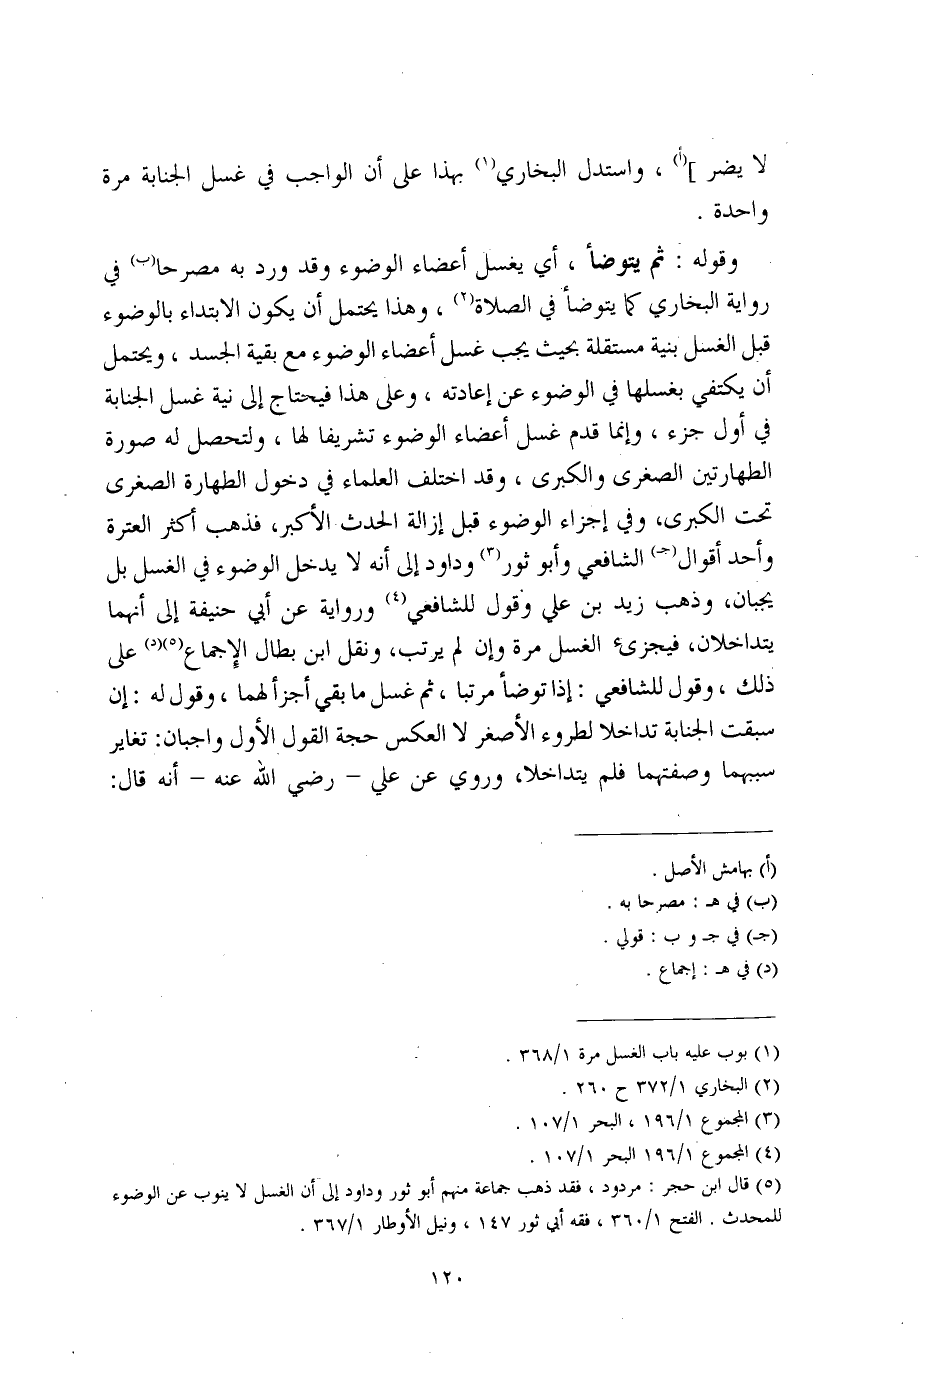 لا يضر ](أ) ، واستدل البخاري(١) بهذا على أن الواجب في غسل الجنابة مرة
واحدة .
وقوله : ثم يتوضأ ، أي يغسل أعضاء الوضوء وقد ورد به مصرحا(ب) في
رواية البخاري كما يتوضأ في الصلاة(٢) ، وهذا يحتمل أن يكون الابتداء بالوضوء
قبل الغسل بنية مستقلة بحيث يجب غسل أعضاء الوضوء مع بقية الجسد ، ويحتمل
أن يكتفي بغسلها في الوضوء عن إعادته ، وعلى هذا فيحتاج إلى نية غسل الجنابة
في أول جزء ، وإنما قدم غسل أعضاء الوضوء تشريفا لها ، ولتحصل له صورة
الطهارتين الصغرى والكبرى ، وقد اختلف العلماء في دخول الطهارة الصغرى
تحت الكبرى، وفي إجزاء الوضوء قبل إزالة الحدث الأكبر، فذهب أكثر العترة
وأحد أقوال(جـ) الشافعي وأبو ثور(٣) وداود إلى أنه لا يدخل الوضوء في الغسل بل
يجبان، وذهب زيد بن علي وقول للشافعي(٤) ورواية عن أبي حنيفة إلى أنهما
يتداخلان، فيجزئ الغسل مرة وإن لم يرتب، ونقل ابن بطال الإجماع(٥)(د) على
ذلك ، وقول للشافعي : إذا توضأ مرتبا ، ثم غسل ما بقي أجزأ لهما ، وقول له : إن
سبقت الجنابة تداخلا لطروء الأصغر لا العكس حجة القول الأول واجبان: تغاير
سببهما وصفتهما فلم يتداخلا، وروي عن علي – رضي الله عنه – أنه قال:
(أ) بهامش الأصل .
(ب) في هـ : مصرحا به .
(جـ) في جـ و ب : قولي .
(د) في هـ : إجماع .
(١) بوب عليه باب الغسل مرة ٣٦٨/١ .
(٢) البخاري ٣٧٢/١ ح ٢٦٠ .
(٣) المجموع ١٩٦/١ ، البحر ١٠٧/١ .
(٤) المجموع ١٩٦/١ البحر ١٠٧/١ .
(٥) قال ابن حجر : مردود ، فقد ذهب جماعة منهم أبو ثور وداود إلى أن الغسل لا ينوب عن الوضوء
للمحدث . الفتح ٣٦٠/١ ، فقه أبي ثور ١٤٧ ، ونيل الأوطار ٣٦٧/١ .
١٢٠